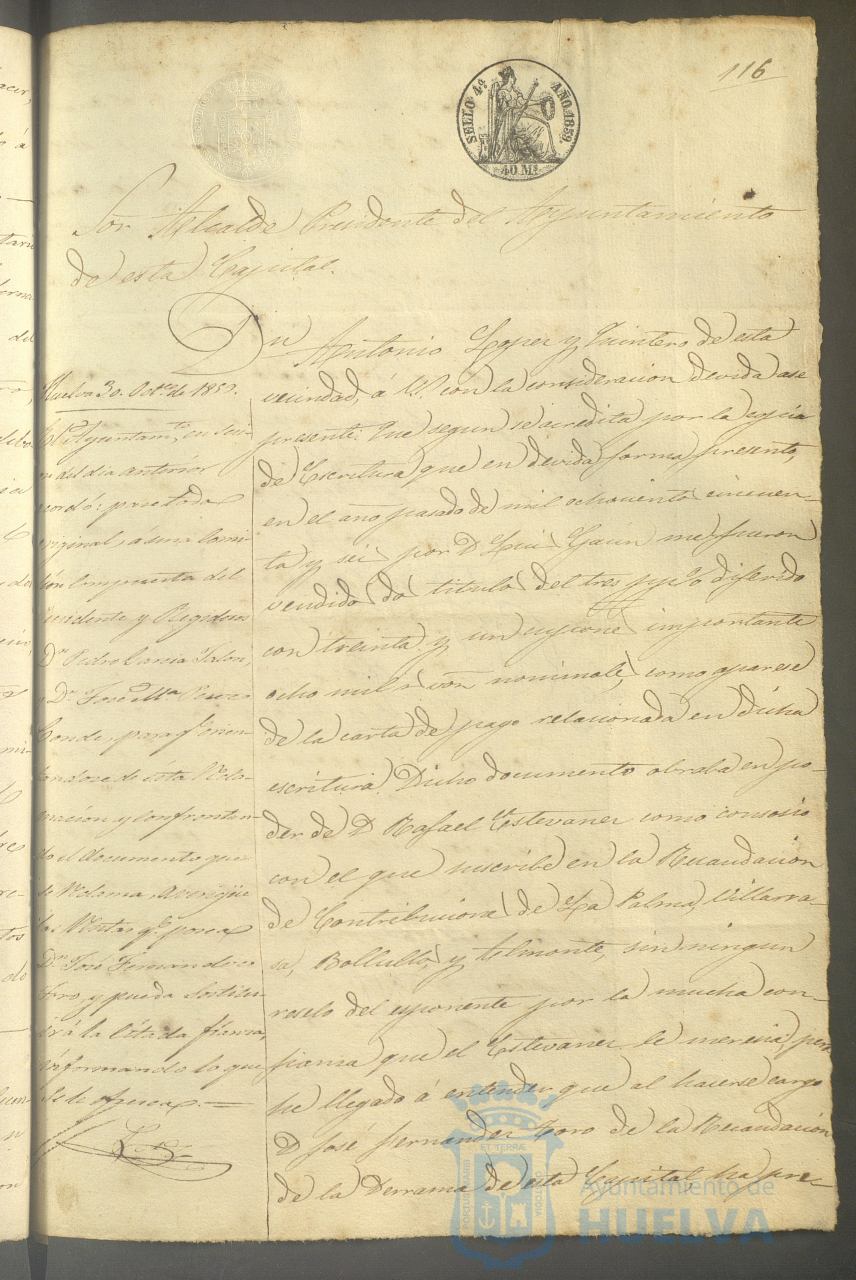 116
SELLO 4º AÑO 1859.
40 Mˢ
Sor Alcalde Presidente del Ayuntamiento
de esta Capital.
Dn Antonio Lopez y Quintero de esta
vecindad, á V. con la consideracion devida ase
presente: Que segun se acredita por la copia
de Escritura que en devida forma presento,
en el año pasado de mil ochocientos cincuen-
ta y seis por D. Luis me fueron
vendidos dos titulos del tres p% diferido
con treinta y un cupones importante
ocho mil rs von nominales, como aparese
de la carta de pago relacionada en dicha
escritura. Dicho documento obraba en po-
der de D. Rafael Estevanez como consosio
con el que suscribe en la Recaudacion
de Contribuciones de La Palma, Villarra-
sa, Bollullos, y Almonte, sin ningun
reselo del esponente por la mucha con-
fianza que el Estevanez le meresia; pero
he llegado á entender que al hacerse cargo
D. José Fernandez Toro de la Recaudacion
de la Derrama de esta Capital, ha pre-
Huelva 30. Octe de 1859.
El Ayuntamto en sesi-
on del dia anterior
cordó: pase todo
original, á una Comi-
sion Compuesta del
Presidente y Regidores
Dn Pedro Garcia Jalon,
y Dn José Ma Perez
Conde, para qe
dose de esta Recla-
macion y confrontan-
do el documento que
se reclama, averigüe
las Rentas qe posea
Dn José Fernandez
Toro, y pueda Sostitu-
ir á la citada fianza,
informando lo que
Se le ofresca. =
Ayuntamiento de
HUELVA